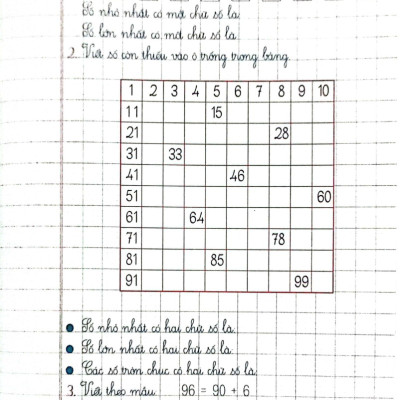 Số nhỏ nhất có một chữ số là
Số lớn nhất có một chữ số là
2. Viết số còn thiếu vào ô trống trong bảng
1 2 3 4 5 6 7 8 9 10
11 15
21 28
31 33
41 46
51 60
61 64
71 78
81 85
91 99
Số nhỏ nhất có hai chữ số là
Số lớn nhất có hai chữ số là
Các số tròn chục có hai chữ số là
3. Viết theo mẫu 96 = 90 + 6